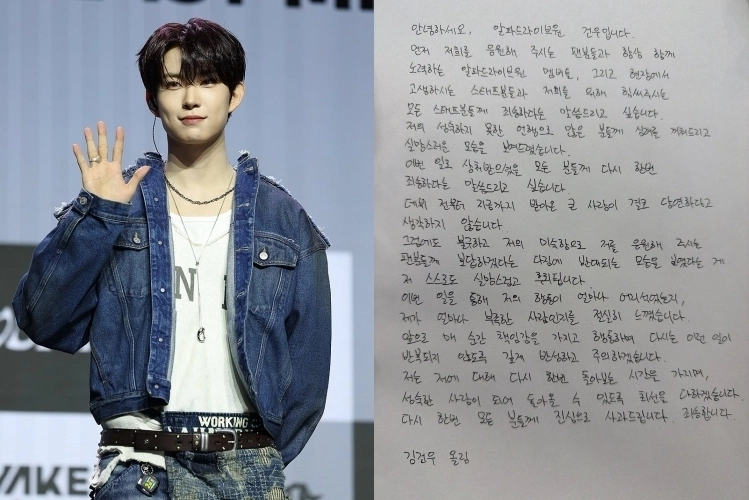 안녕하세요, 알파드라이브원 건우입니다.
먼저 저희를 응원해 주시는 팬분들과 항상 함께
노력하는 알파드라이브원 멤버들, 그리고 현장에서
고생하시는 스태프분들과 저희를 위해 힘써주시는
모든 스태프분들께 죄송하다는 말씀드리고 싶습니다.
저의 성숙하지 못한 언행으로 많은 분들께 심려를 끼쳐드리고
실망스러운 모습을 보여드렸습니다.
이번 일로 상처받으셨을 모든 분들께 다시 한번
죄송하다는 말씀드리고 싶습니다
데뷔 전부터 지금까지 받아온 큰 사랑이 결코 당연하다고
생각하지 않습니다.
그럼에도 불구하고 저의 미숙함으로 저를 응원해 주시는
팬분들께 보답하겠다는 다짐에 반대되는 모습을 보였다는 게
저 스스로도 실망스럽고 후회됩니다
이번 일을 통해 저의 행동이 얼마나 어리석었는지,
제가 얼마나 부족한 사람인지를 절실히 느꼈습니다.
앞으로 매 순간 책임감을 가지고 행동하며 다시는 이런 일이
반복되지 않도록 깊게 반성하고 주의하겠습니다.
저는 저에 대해 다시 한번 돌아보는 시간을 가지며,
성숙한 사람이 되어 돌아올 수 있도록 최선을 다하겠습니다.
다시 한번 모든 분들께 진심으로 사과드립니다. 죄송합니다.
김건우 올림
WORKING
WAKE